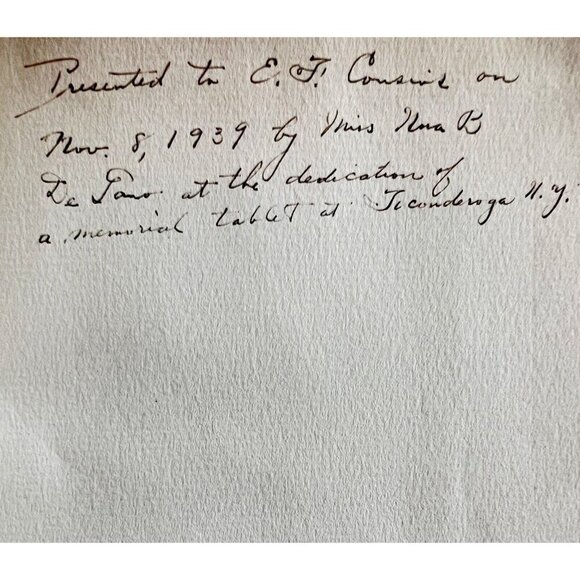 Presented to E. F. Cousins on
Nov. 8, 1939 by Miss B
De at the dedication of
a memorial tablet at Ticonderoga N.Y.